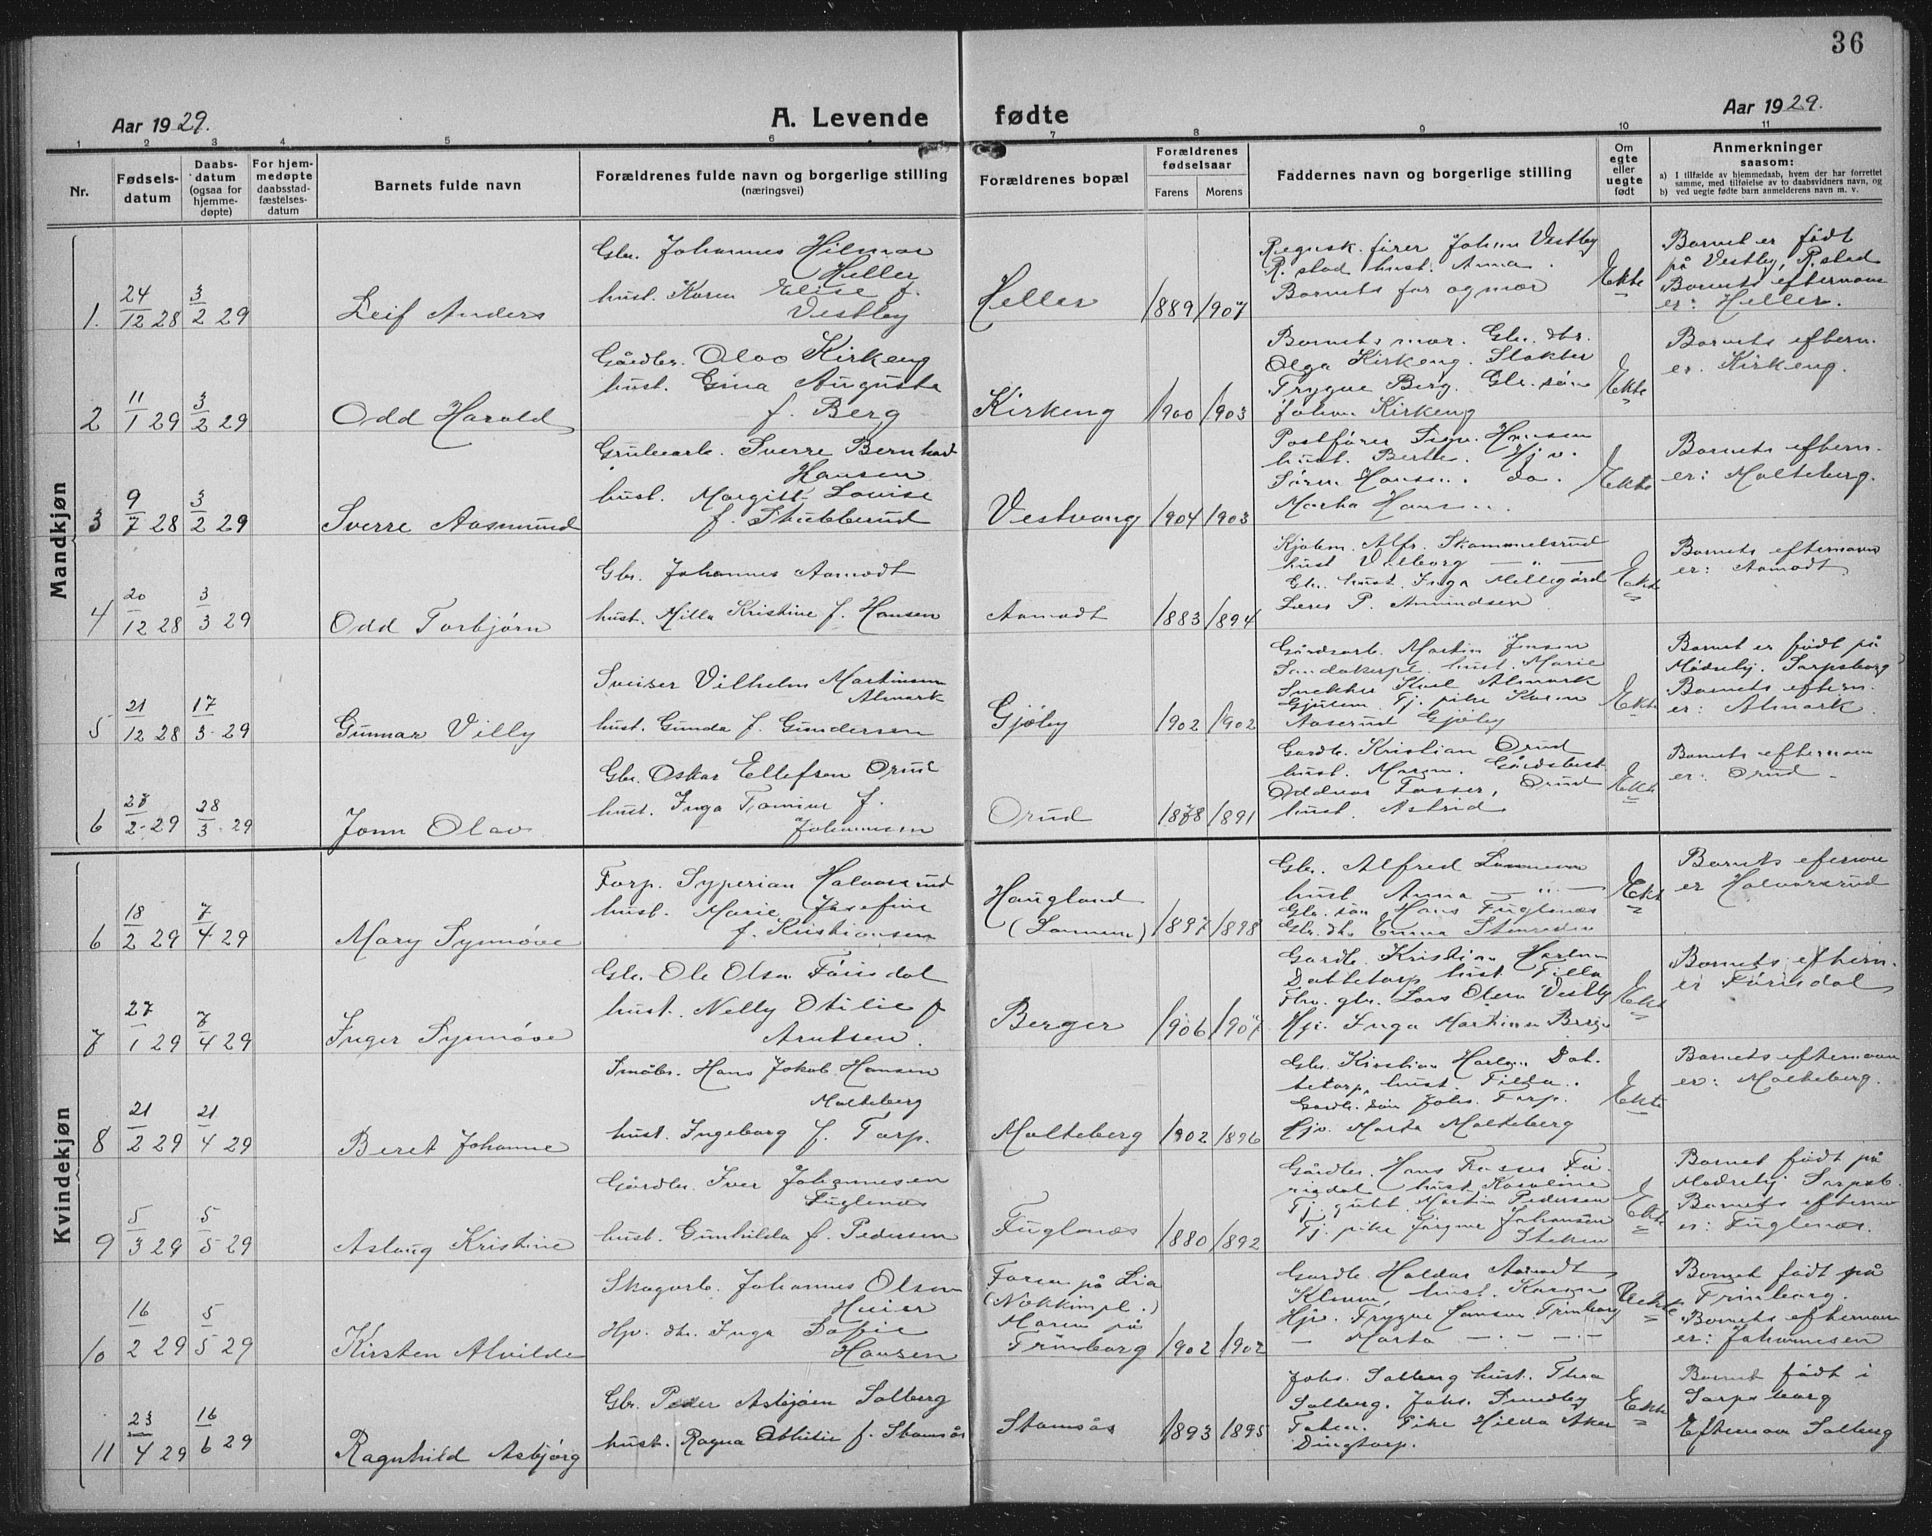 36
Aar 1929.
A. Levende fødte
Aar 1929.
1 2 3 4 5 6 7 8 9 10 11
Nr.
Fødselsdatum
Daabsdatum (ogsaa for hjemmedøpte)
For hjemmedøpte daabsstadfæstelsesdatum
Barnets fulde navn
Forældrenes fulde navn og borgerlige stilling
(næringsvei)
Forældrenes bopæl
Forældrenes fødselsaar
Farens Morens
Faddernes navn og borgerlige stilling
Om egte eller uegte født
Anmerkninger
saasom:
a) I tilfælde av hjemmedaab, hvem der har forrettet samme, med tilføielse av to daabsvidners navn, og
b) ved uegte fødte barn anmelderens navn m. v.
Mandkjøn
1. 24/12 28 3/2 29 Leif Anders
Gbr. Johannes Hilmar
Heller
hust. Karen Elise f.
Vestby
Heller 1889 1907
Regnsk. fører Johan Vestby
R.stad hust. Anna.
Barnets far og mor
Ekte
Barnet er født
på Vestby, R.stad
Barnets efternavn
er: Heller.
2 11/1 29 3/2 29 Odd Harald
Gårdbr. Olav Kirkeng
hust. Gina Augusta
f. Berg
Kirkeng 1900 1903
Barnets mor. Gbr. dtr.
Olga Kirkeng. Slakter
Trygve Berg. Gbr. søn
Johan Kirkeng
Ekte
Barnets eftern.
er. Kirkeng.
3 9/7 28 3/2 29 Sverre Aasmund
Grubearb. Sverre Bernhard
Hansen
hust. Margitt Lovise
f. Stubberud
Vestvang 1904 1903
Postfører Sigv. Hansen
hust. Berthe. Hjv.
Søren Hansen. do.
Martha Hansen.
Ekte
Barnets eftern.
er: Molteberg.
4 20/12 28 3/3 29 Odd Torbjørn
Gbr. Johannes Aamodt
hust. Milla Kristine f. Hansen
Aamodt 1883 1894
Kjøbm. Alfr. Skammelsrud
hust Valborg — " —
Gbr. hust. Inga Millegård
Lærer P. Amundsen
Ekte
Barnets efternavn
er: Aamodt
5 21/12 28 17/3 29 Gunnar Villy
Sveiser Vilhelm Martinsen
Almark
hust. Gunda f. Gundersen
Gjøby 1902 1902
Gårdsarb. Martin Jensen
hust. Marie
Snekker Karl Almark
Tj. pike Karen
Aaserud Gjøby
Ekte
Barnet er født på
Mødrehj. Sarpsborg
Barnets eftern.
er: Almark.
6 27/2 29 28/3 29 Jonn Olav
Gbr. Oskar Ellefsen Orud
hust. Inga f.
Johannesen
Orud 1878 1891
Gardbr. Kristian Orud
hust. Maren. Gårdsbest.
Oddvar Tasser, Orud
hust. Astrid
Ekte
Barnets efternavn
er: Orud
Kvindekjøn
6 18/2 29 7/4 29 Mary Synnøve
Forp. Syperian Halvorsrud
hust. Marie Josefine
f. Kristiansen
Haugland
1897 1898
Gbr. Alfred
hust. Anna — " —
Gbr. søn Hans Fuglenæs
Gbr. dtr. Emma
Ekte
Barnets efternavn
er Halvorsrud
7 27/1 29 7/4 29 Inger Synnøve
Gbr. Ole Olsen Förisdal
hust. Nelly Otilie f
Arntsen.
Berger 1906 1907
Gardbr. Kristian Karlsen
Dattetorp hust. Tilla
Fhv. gbr. Lars Olsen Vestby
Hjv. Inga Martinsen Berger
Ekte
Barnets eftern.
er Förisdal
8 21/2 29 21/4 29 Beret Johanne
Småbr. Hans Jakob Hansen
Molteberg
hust. Ingeborg f. Torp.
Molteberg 1902 1896
Gbr. Kristian Karlsen Dat-
tetorp, hust. Tilda.
Gardbr. søn Johs. Torp.
Hjv. Marta Molteberg
Ekte
Barnets efternavn
er: Molteberg.
9 5/3 29 5/5 29 Aslaug Kristine
Gårdbr. Iver Johannesen
Fuglenæs
hust. Gunhilda f. Pedersen
Fuglenæs 1880 1892
Gårdbr. Hans Tasser Fö-
risdal hust Karoline
Tj. gutt Martin Pedersen
Tj. pike Johansen
Ekte
Barnet født på
Mødrehj Sarpsb.
Barnets eftern.
er: Fuglenæs.
10 16/2 29 5/5 29 Kirsten Alvilde
Skogarb. Johannes Olsen
Huier
Hjv. dtr. Inga Sofie
Hansen
Faren på Lia
(Nokkimpl.)
Moren på
Frimborg 1902 1902
Gardbr. Haldor Aamodt
hust. Karen
Hjv. Trygve Hansen Frimborg
— Marta — " —
Uekte
Barnet født på
Frimborg.
Barnets efternavn
er: Johannesen
11 23/4 29 16/6 29 Ragnhild Asbjørg
Gbr. Peder Asbjørn Solberg
hust. Ragna Othilie f. Stomsås
Stomsås 1893 1895
Johs. Solberg hust. Thea
Solberg. Johs. Sundby
Pike Hilda Aker
Dingtorp.
Ekte
Barnet født i
Sarpsborg
Efternavn Solberg